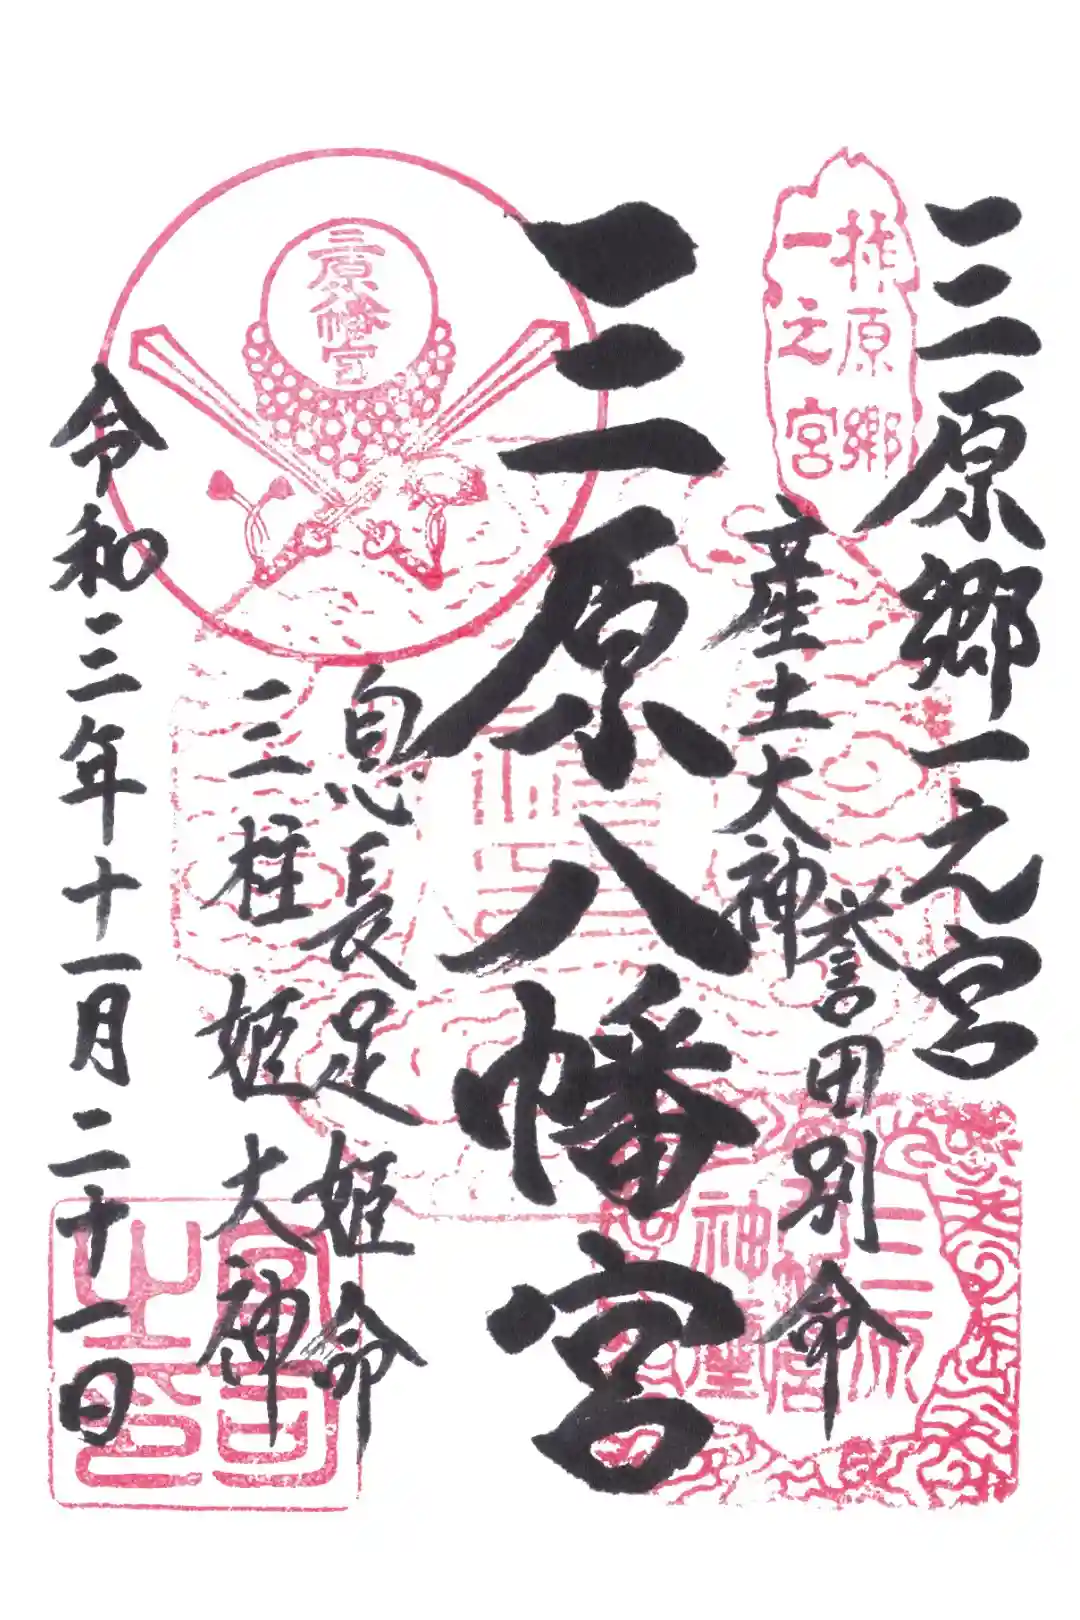 三原郷一之宮
産土大神
誉田別命
三原八幡宮
息長足姫命
三柱姫大神
令和三年十一月二十一日
原郷
一之宮
三原八幡宮